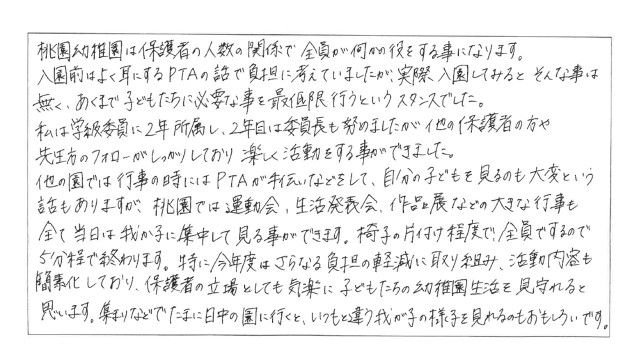 桃園幼稚園は保護者の人数の関係で全員が何か役をする事になります。
入園前はよく耳にするPTAの話で負担に考えていましたが、実際入園してみるとそんな事は
無く、あくまで子どもたちに必要な事を最低限行うというスタンスでした。
私は学級委員に2年所属し、2年目は委員長も努めましたが他の保護者の方や
先生方のフォローがしっかりしており楽しく活動をする事ができました。
他の園では行事の時にはPTAが手伝いなどをして、自分の子どもを見るのも大変という
話もありますが、桃園では運動会、生活発表会、作品展などの大きな行事も
全て当日は我が子に集中して見る事ができます。椅子の片付け程度で、全員でするので
5分程で終わります。特に今年度はさらなる負担の軽減に取り組み、活動内容も
簡素化しており、保護者の立場としても気楽に子どもたちの幼稚園生活を見守れると
思います。集まりなどでたまに日中の園に行くと、いつもと違う我が子の様子を見れるのもおもしろいです。